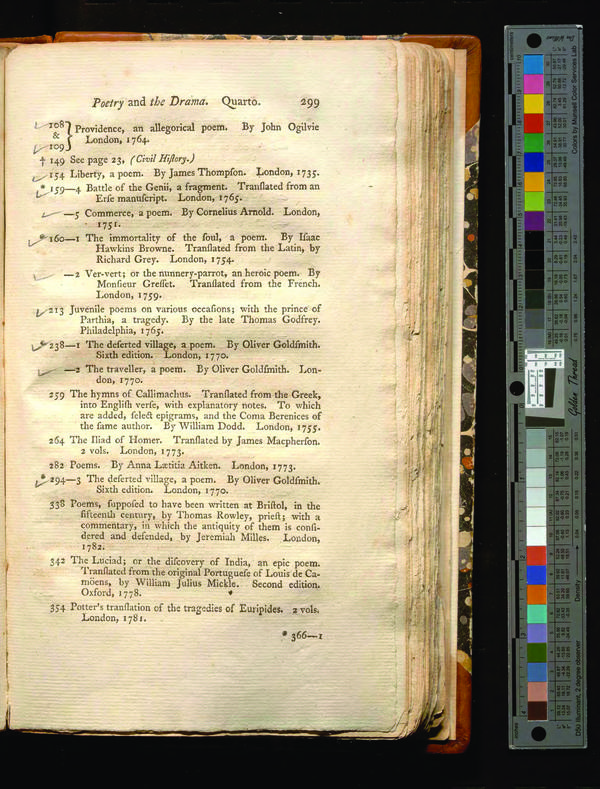 Poetry and the Drama. Quarto. 299
108 & 109 } Providence, an allegorical poem. By John Ogilvie
London, 1764.
† 149 See page 23, (Civil Hiſtory.)
154 Liberty, a poem. By James Thompſon. London, 1735.
* 159—4 Battle of the Genii, a fragment. Tranſlated from an
Erſe manuſcript. London, 1765.
—5 Commerce, a poem. By Cornelius Arnold. London,
1751.
* 160—1 The immortality of the ſoul, a poem. By Iſaac
Hawkins Browne. Tranſlated from the Latin, by
Richard Grey. London, 1754.
—2 Ver-vert; or the nunnery-parrot, an heroic poem. By
Monſieur Greſſet. Tranſlated from the French.
London, 1759.
213 Juvenile poems on various occaſions; with the prince of
Parthia, a tragedy. By the late Thomas Godfrey.
Philadelphia, 1765.
* 238—1 The deſerted village, a poem. By Oliver Goldſmith.
Sixth edition. London, 1770.
—2 The traveller, a poem. By Oliver Goldſmith. Lon-
don, 1770.
259 The hymns of Callimachus. Tranſlated from the Greek,
into Engliſh verſe, with explanatory notes. To which
are added, ſelect epigrams, and the Coma Berenices of
the ſame author. By William Dodd. London, 1755.
264 The Iliad of Homer. Tranſlated by James Macpherſon.
2 vols. London, 1773.
282 Poems. By Anna Lætitia Aitken. London, 1773.
* 294—3 The deſerted village, a poem. By Oliver Goldſmith.
Sixth edition. London, 1770.
338 Poems, ſuppoſed to have been written at Briſtol, in the
fifteenth century, by Thomas Rowley, prieſt; with a
commentary, in which the antiquity of them is conſi-
dered and defended, by Jeremiah Milles. London,
1782.
342 The Luciad; or the diſcovery of India, an epic poem.
Tranſlated from the original Portugueſe of Louis de Ca-
möens, by William Julius Mickle. Second edition.
Oxford, 1778.
354 Potter's tranſlation of the tragedies of Euripides. 2 vols.
London, 1781.
* 366—1
Colors by Munsell Color Services Lab
Golden Thread
Density
D50 Illuminant, 2 degree observer